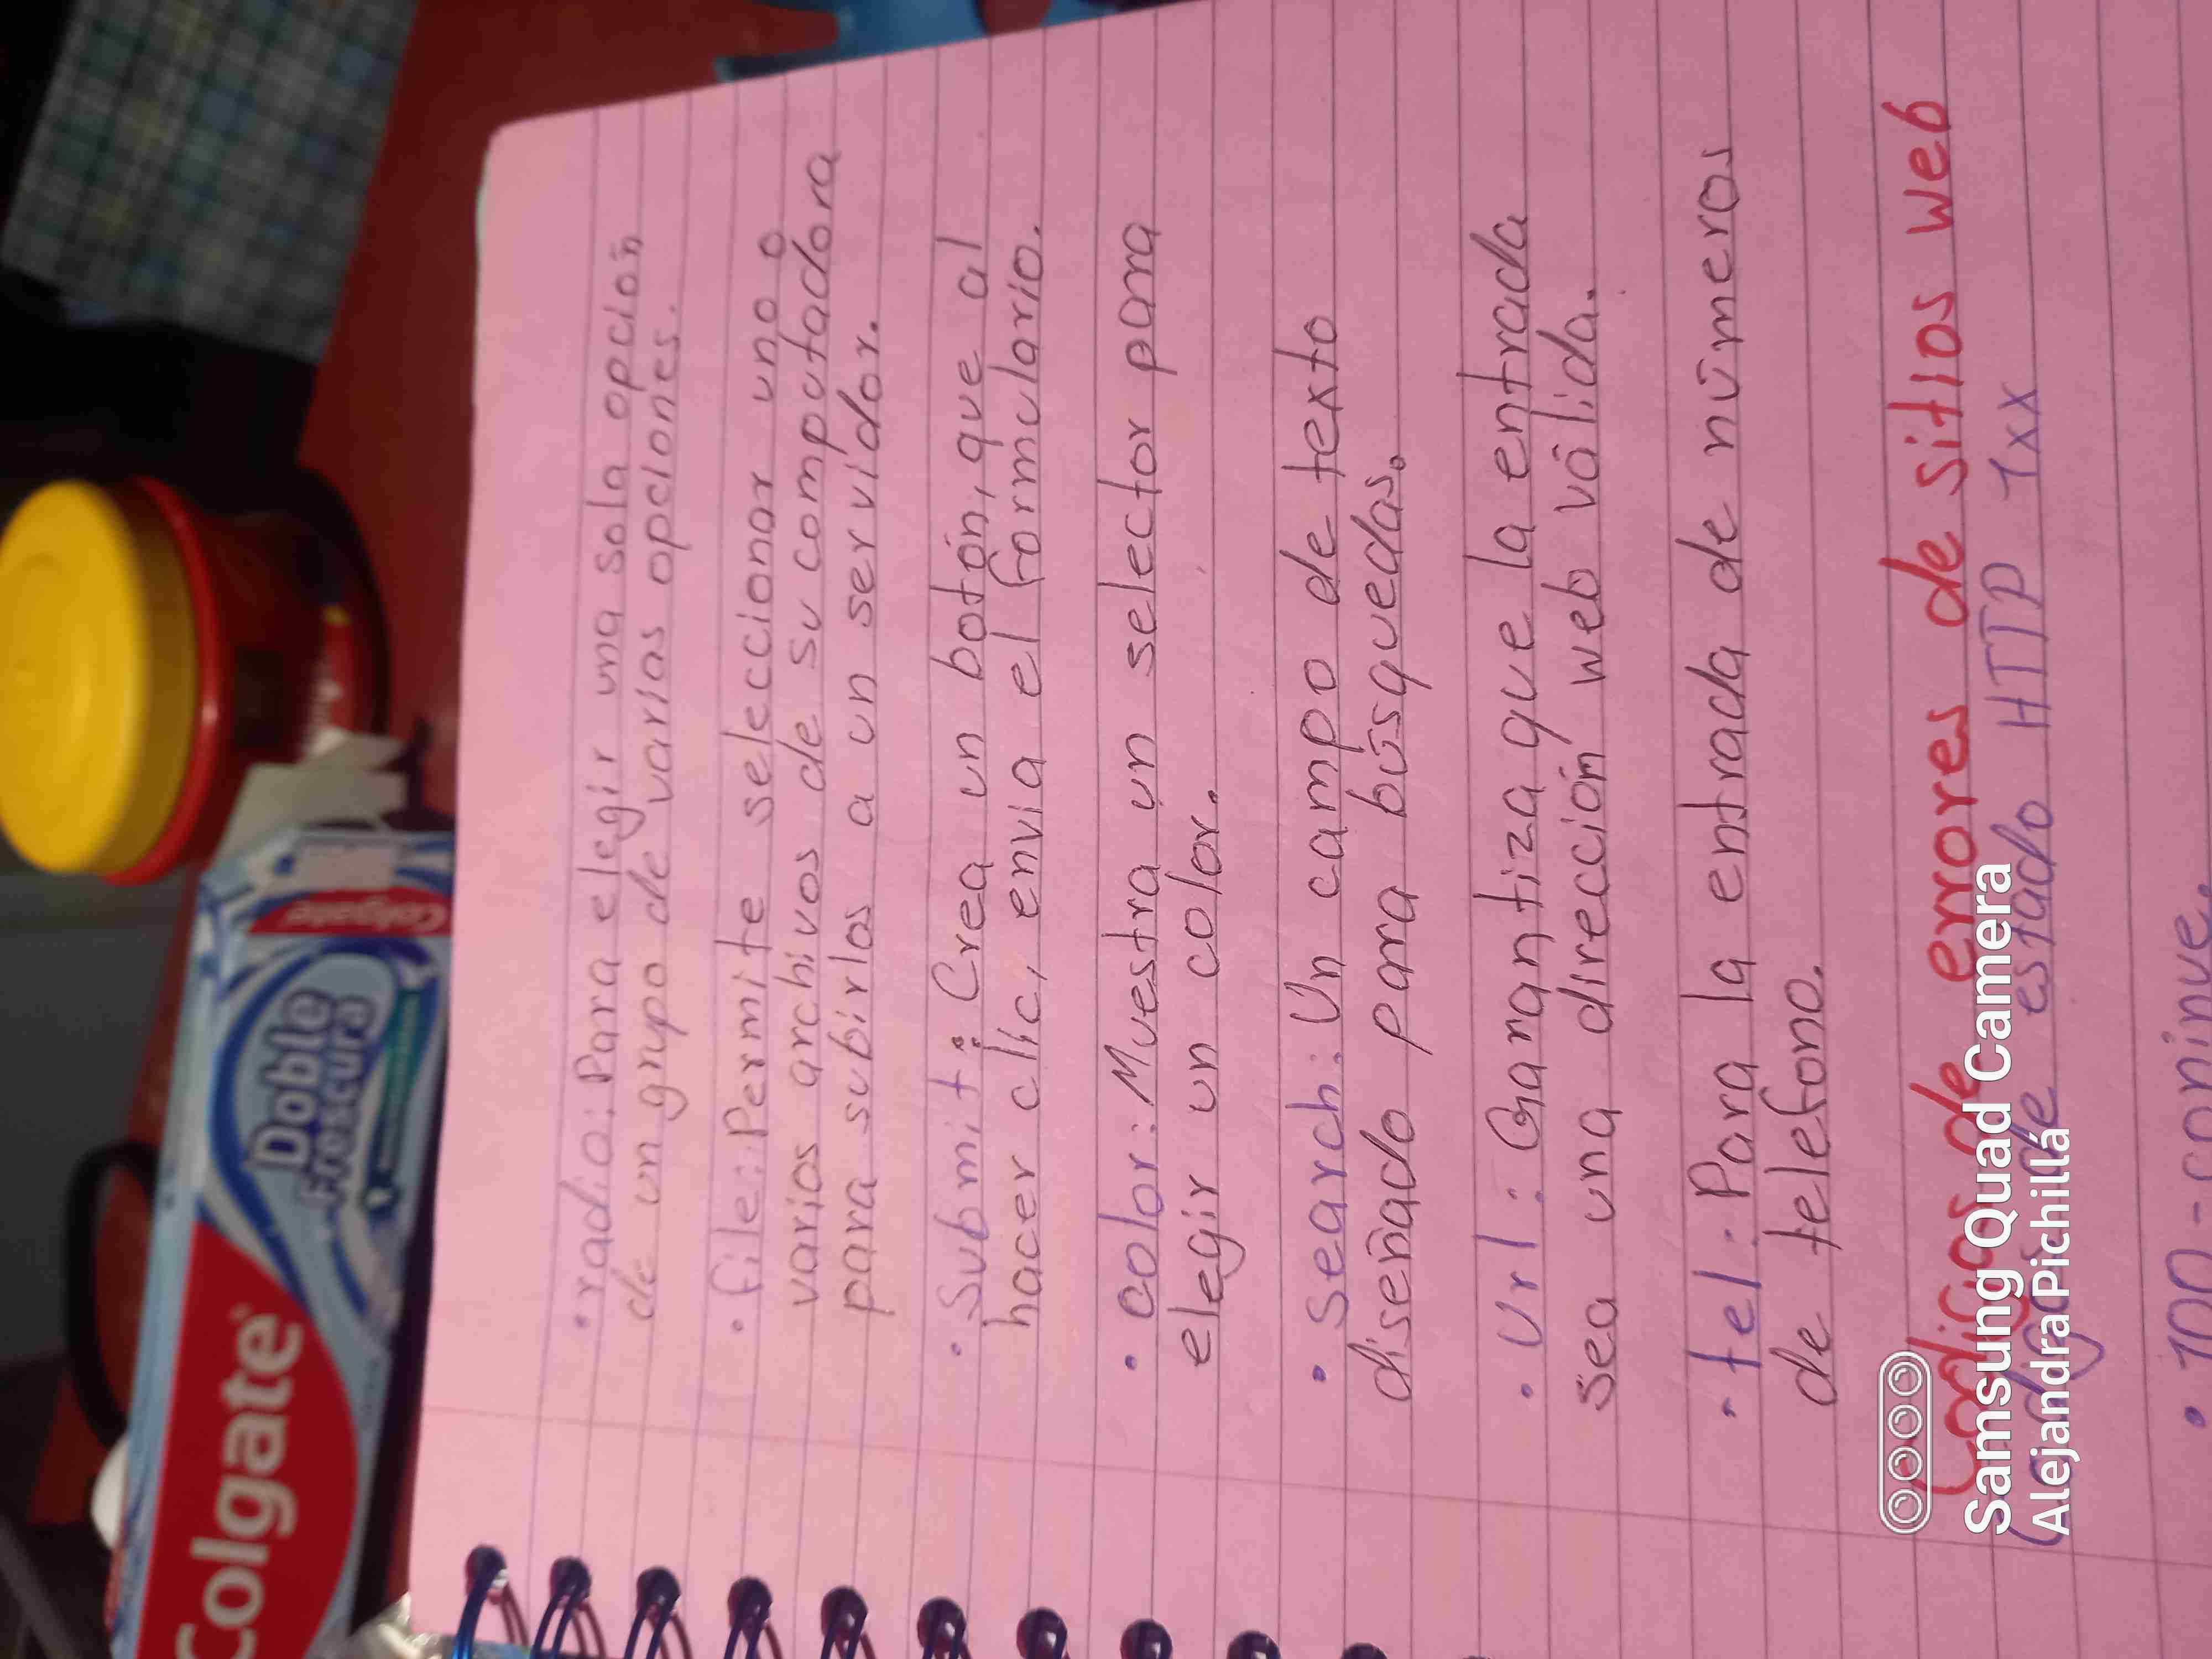 • radio: Para elegir una sola opción
de un grupo de varias opciones.
• file: Permite seleccionar uno o
varios archivos de su computadora
para subirlos a un servidor.
• Submit: Crea un botón, que al
hacer clic, envia el formulario.
• color: Muestra un selector para
elegir un color.
• search: Un campo de texto
diseñado para búsquedas.
• Url: Garantiza que la entrada
sea una dirección web válida.
• tel: Para la entrada de números
de telefono.
Codigos de errores de sitios web
de estado HTTP 1xx
• 100-coninue.
Colgate
Doble
Frescura
Colgate
Samsung Quad Camera
AlejandraPichillá